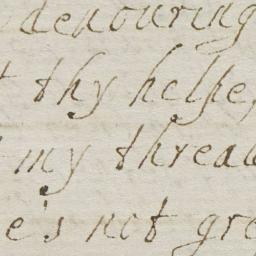 devouring
thy helpe,
my thread
e's not gre